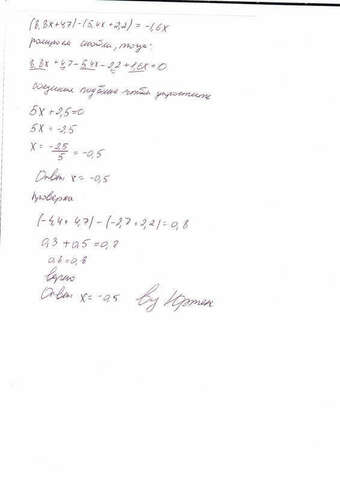 (8,8x+4,7)-(5,4x+2,2)=-1,6x
раскроем скобки, тогда:
8,8x+4,7-5,4x-2,2+1,6x=0
подобные чтобы упростить
5x+2,5=0
5x=-2,5
x=-2,5/5=-0,5
Ответ x=-0,5
Проверка
(-4,4+4,7)-(-2,7+2,2)=0,8
0,3+0,5=0,8
0,8=0,8
верно
Ответ x=-0,5 by